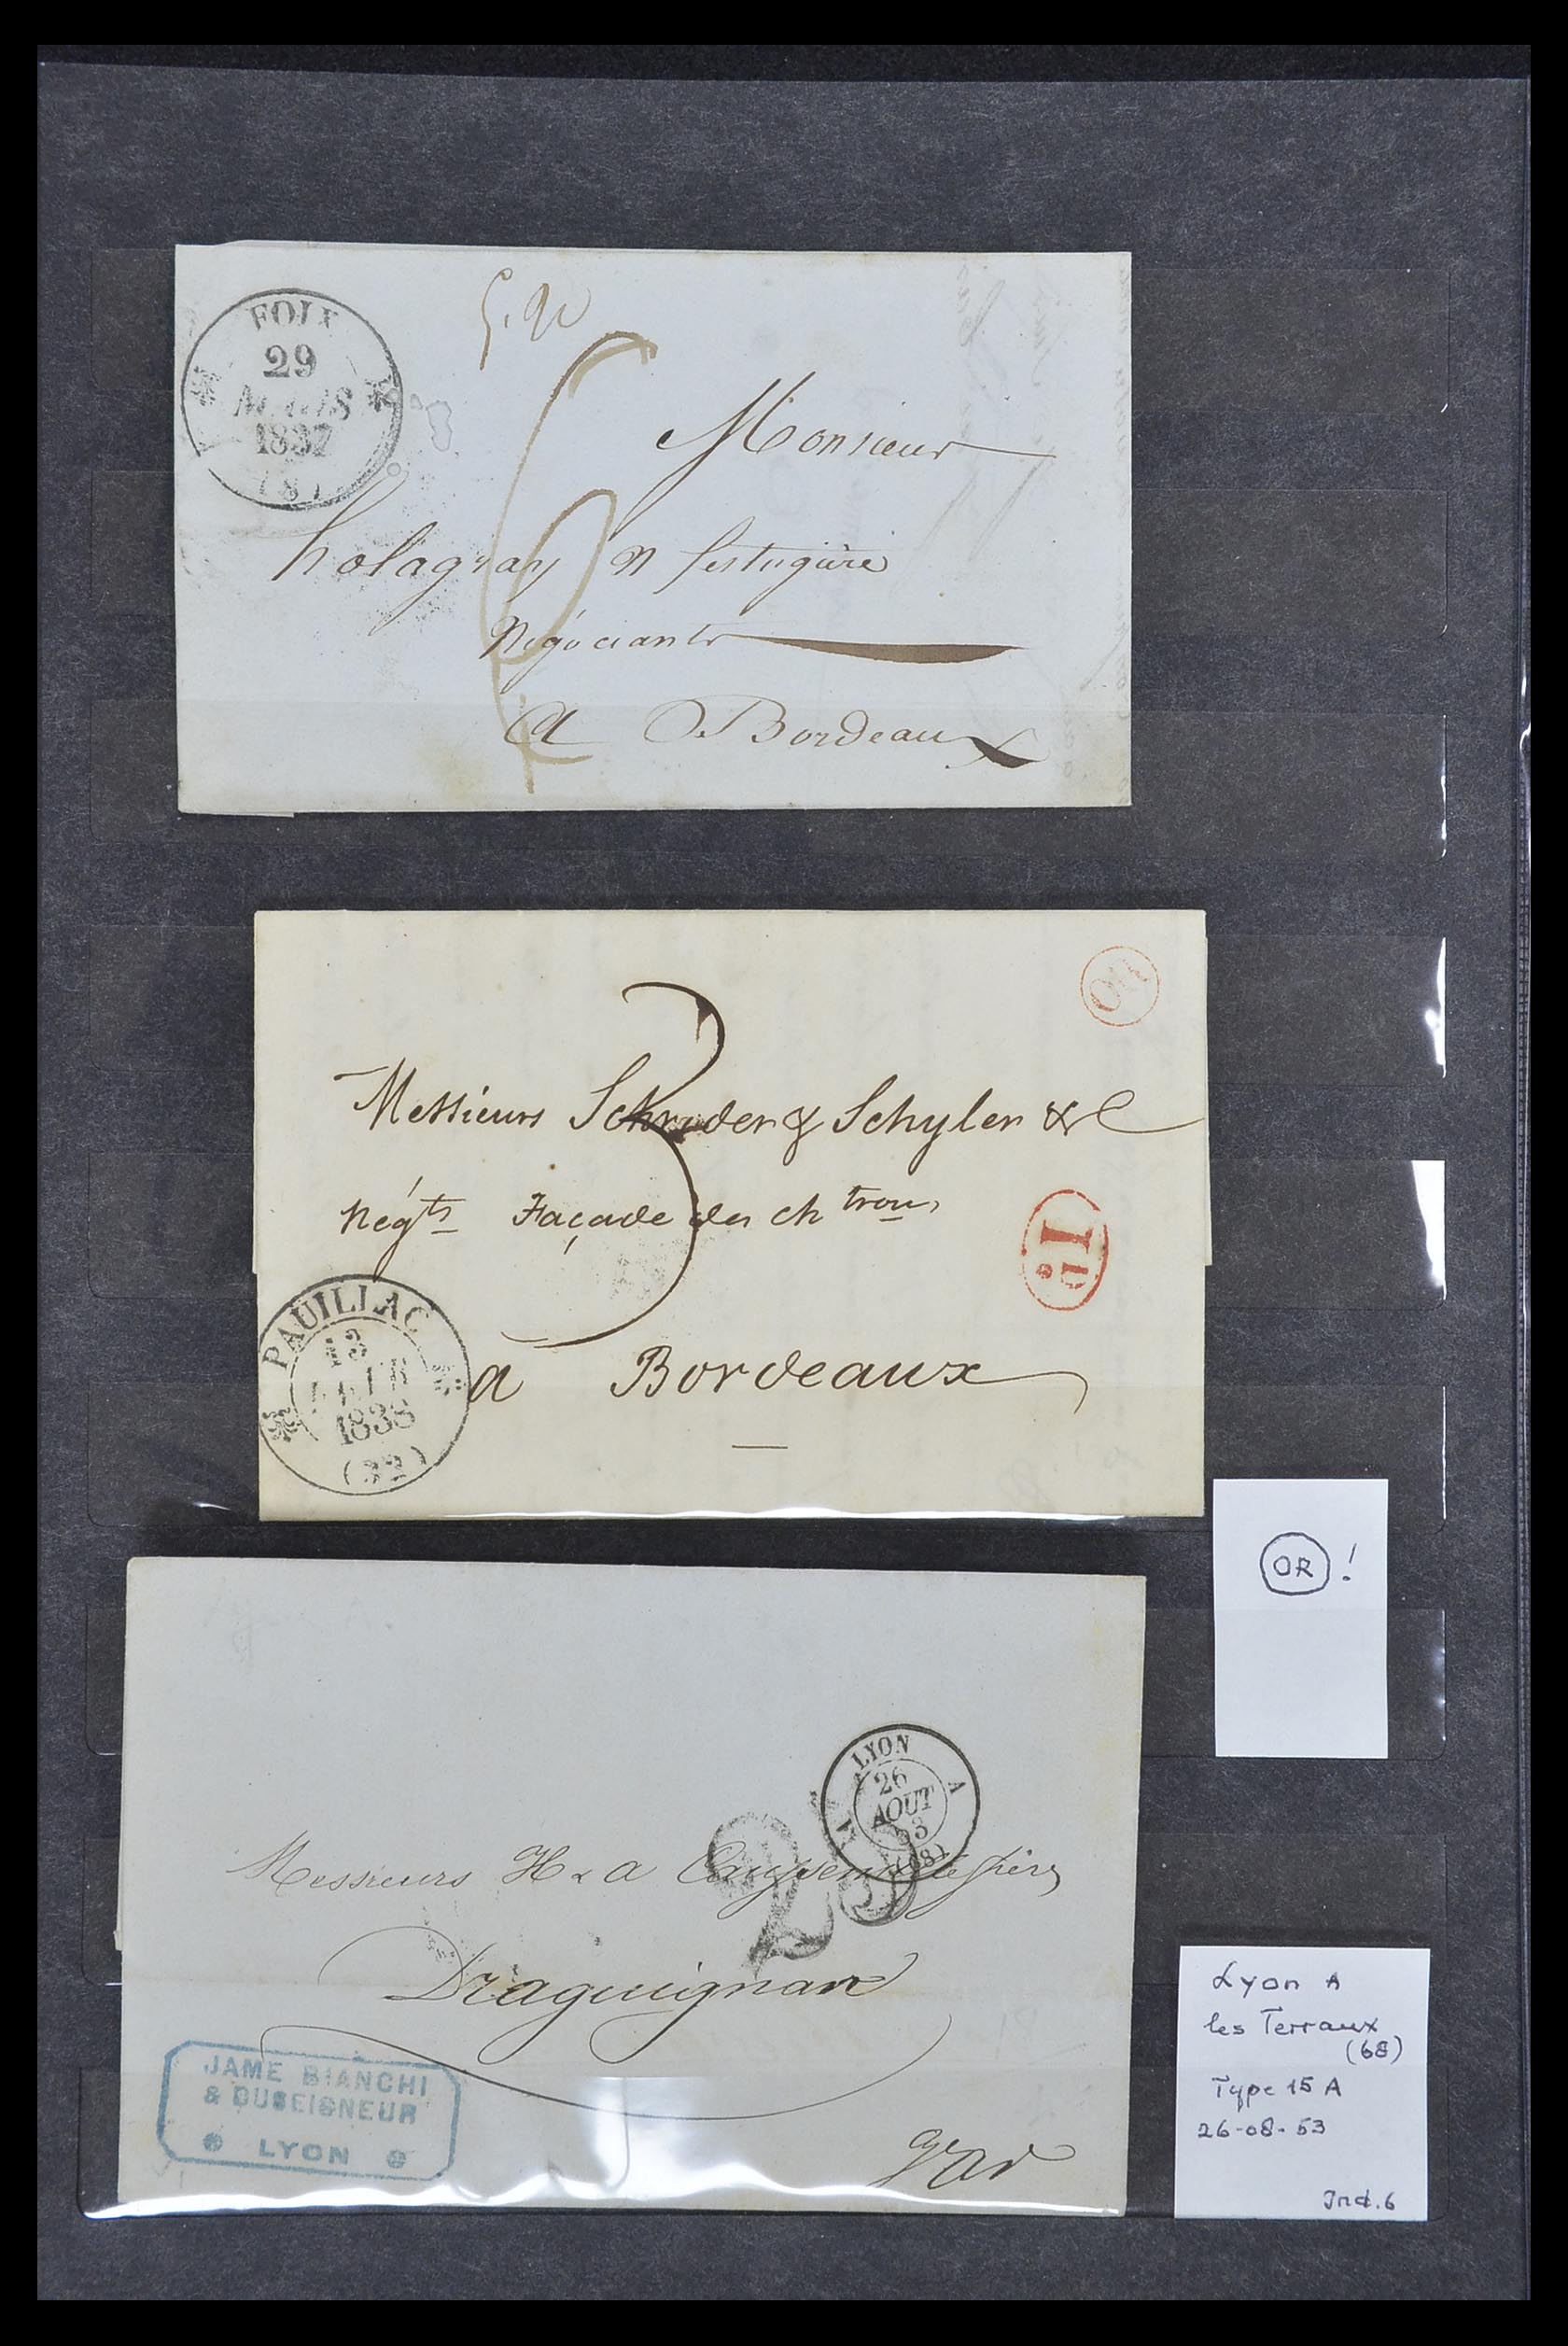 FOIX
29
MARS
1837
(8)
6
Monsieur
holagray
Négociants
A Bordeaux
OR
3
Messieurs Schrider & Schyler & C
Négts Façade des chtrons
ID
PAUILLAC
13
1838
(32)
a Bordeaux
OR !
LYON A
26
AOUT
53
(68)
25
Messieurs H & A
Draguignan
Var
JAME BIANCHI
& DUSEIGNEUR
LYON
Lyon A
les Terraux
(68)
Type 15 A
26-08-53
Ind. 6